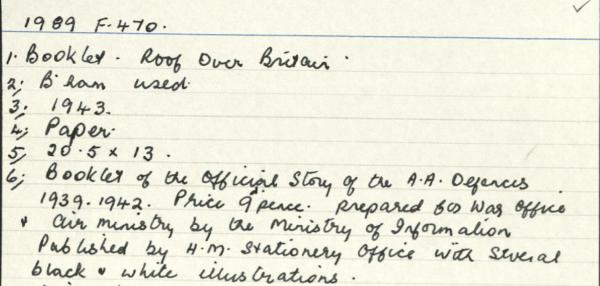 1989 F.470.
1. Booklet. Roof Over Britain.
2; B'ham used.
3; 1943.
4; Paper.
5; 20.5 x 13.
6; Booklet of the Official Story of the A.A. Defences
1939-1942. Price 9 pence. Prepared for War Office
& Air Ministry by the Ministry of Information
Published by H.M. Stationery Office with Several
black & white illustrations.